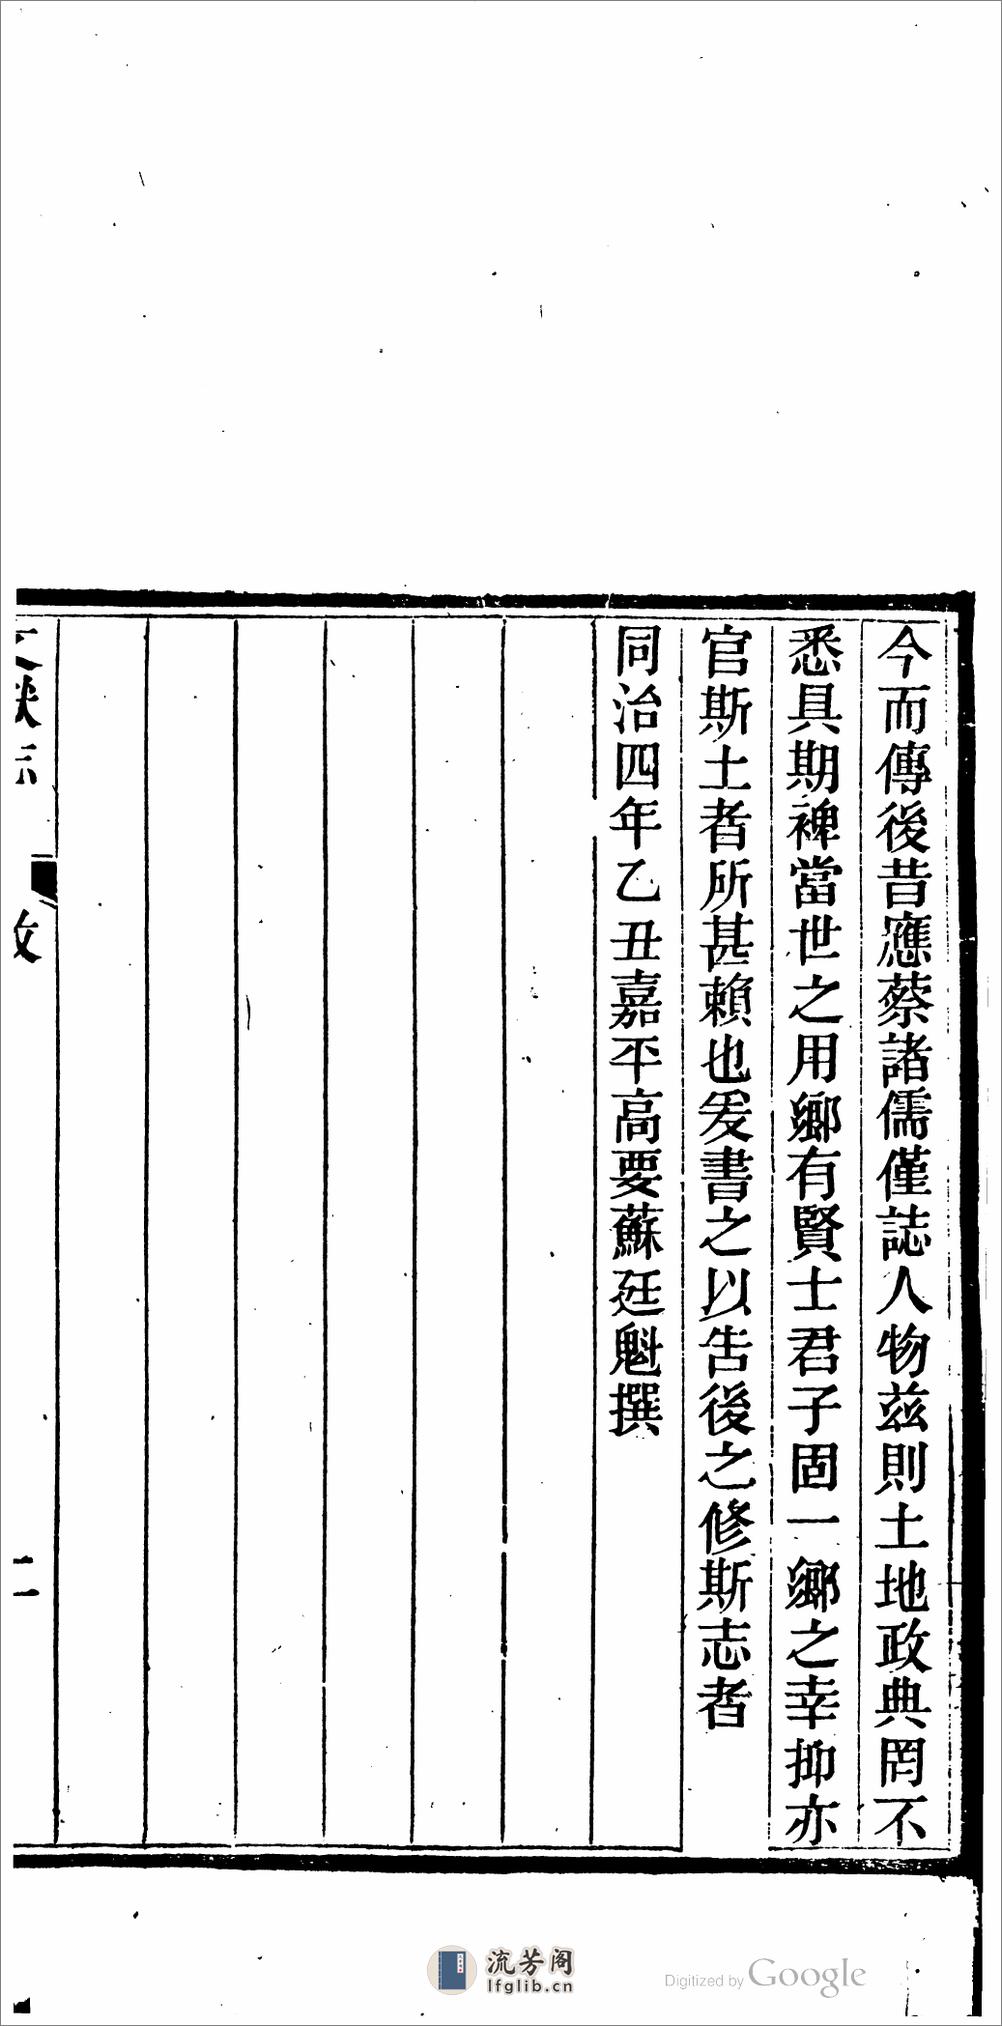 今而傳後昔應蔡諸儒僅誌人物兹則土地政典罔不
悉具期裨當世之用鄉有賢士君子固一鄉之幸抑亦
官斯土者所甚賴也爰書之以告後之修斯志者
同治四年乙丑嘉平高要蘇廷魁撰
二
流芳阁
lfglib.cn
Digitized by Google